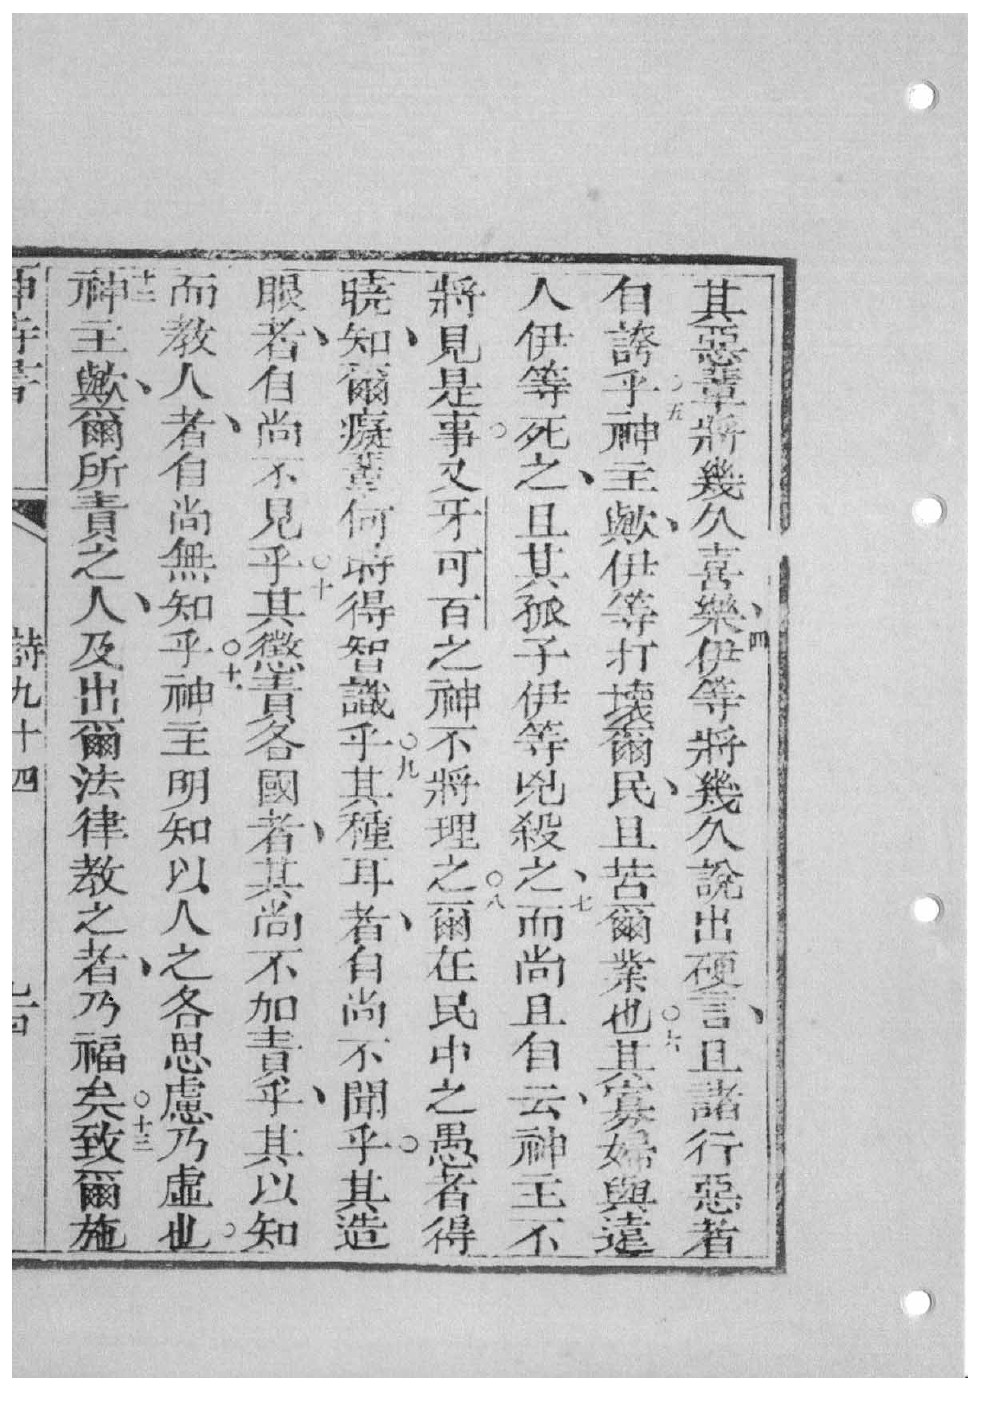 其惡輩將幾久喜樂、四伊等將幾久說出硬言、且諸行惡者
自誇乎○五神主歟、伊等打壞爾民、且苦爾業也○六其寡婦與遠
人伊等死之、且其孤子伊等兇殺之、七而尚且自云、神主不
將見是事○又牙可百之神不將理之○八爾在民中之愚者得
曉、知爾癡輩何時得智識乎○九其種耳者、自尚不聞乎○其造
眼、者自尚不見乎○十其懲責各國者、其尚不加責乎、其以知
而教人者、自尚無知乎○十一神主明知以人之各思慮乃虛也○
十二神主歟、爾所責之人、及出爾法律教之者、乃福矣○十三致爾施
神詩書 詩九十四